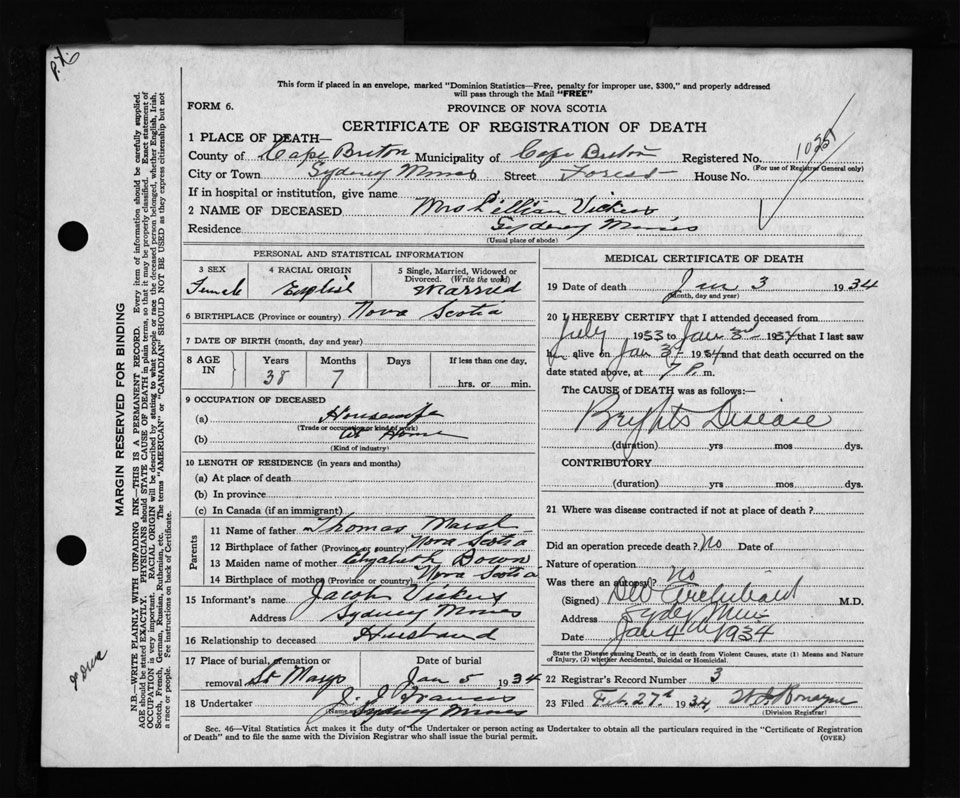 This form if placed in an envelope, marked "Dominion Statistics—Free, penalty for improper use, $300," and properly addressed
will pass through the Mail "FREE"
FORM 6.
PROVINCE OF NOVA SCOTIA
CERTIFICATE OF REGISTRATION OF DEATH
1 PLACE OF DEATH—
County of Cape Breton Municipality of Cape Breton Registered No.
(For use of Registrar General only)
City or Town Sydney Mines Street Forest House No.
If in hospital or institution, give name
2 NAME OF DECEASED Mrs Lillian Vickers
Residence Sydney Mines
(Usual place of abode)
PERSONAL AND STATISTICAL INFORMATION
3 SEX Female
4 RACIAL ORIGIN English
5 Single, Married, Widowed or Divorced. (Write the word) Married
6 BIRTHPLACE (Province or country) Nova Scotia
7 DATE OF BIRTH (month, day and year)
8 AGE IN Years 38 Months 7 Days If less than one day. hrs. or min.
9 OCCUPATION OF DECEASED
(a) Housewife
(Trade or occupation or kind of work)
(b) at Home
(Kind of industry)
10 LENGTH OF RESIDENCE (in years and months)
(a) At place of death
(b) In province
(c) In Canada (if an immigrant)
Parents
11 Name of father Thomas Marsh
12 Birthplace of father (Province or country) Nova Scotia
13 Maiden name of mother Elizabeth
14 Birthplace of mother (Province or country) Nova Scotia
15 Informant's name Jacob Vickers
Address Sydney Mines
16 Relationship to deceased Husband
17 Place of burial, cremation or removal St Marys Date of burial Jan 5 1934
18 Undertaker
Sydney Mines
MEDICAL CERTIFICATE OF DEATH
19 Date of death Jan 3 1934
(Month, day and year)
20 I HEREBY CERTIFY that I attended deceased from
July 1933 to Jan 3rd 1934 that I last saw
her alive on Jan 3rd 1934 and that death occurred on the
date stated above, at 7 P. m.
The CAUSE OF DEATH was as follows:—
Brights Disease
(duration) yrs mos dys.
CONTRIBUTORY
(duration) yrs mos dys.
21 Where was disease contracted if not at place of death?
Did an operation precede death? No Date of
Nature of operation
Was there an autopsy? No
(Signed) Archibald M.D.
Address Sydney Mines
Date Jan 4th 1934
State the Disease causing Death, or in death from Violent Causes, state (1) Means and Nature
of Injury, (2) whether Accidental, Suicidal or Homicidal.
22 Registrar's Record Number 3
23 Filed Feb. 27th 1934
(Division Registrar)
Sec. 46—Vital Statistics Act makes it the duty of the Undertaker or person acting as Undertaker to obtain all the particulars required in the "Certificate of Registration
of Death" and to file the same with the Division Registrar who shall issue the burial permit.
(OVER)
MARGIN RESERVED FOR BINDING
N.B.—WRITE PLAINLY WITH UNFADING INK—THIS IS A PERMANENT RECORD. Every item of information should be carefully supplied.
AGE should be stated EXACTLY. PHYSICIANS should STATE CAUSE OF DEATH in plain terms, so that it may be properly classified. Exact statement of
OCCUPATION is very important. RACIAL ORIGIN will be described by stating to what people or race the deceased person belonged, whether English, Irish,
Scotch, French, German, Russian, Ruthenian, etc. The terms "AMERICAN" or "CANADIAN" SHOULD NOT BE USED as they express citizenship but not
a race or people. See instructions on back of Certificate.